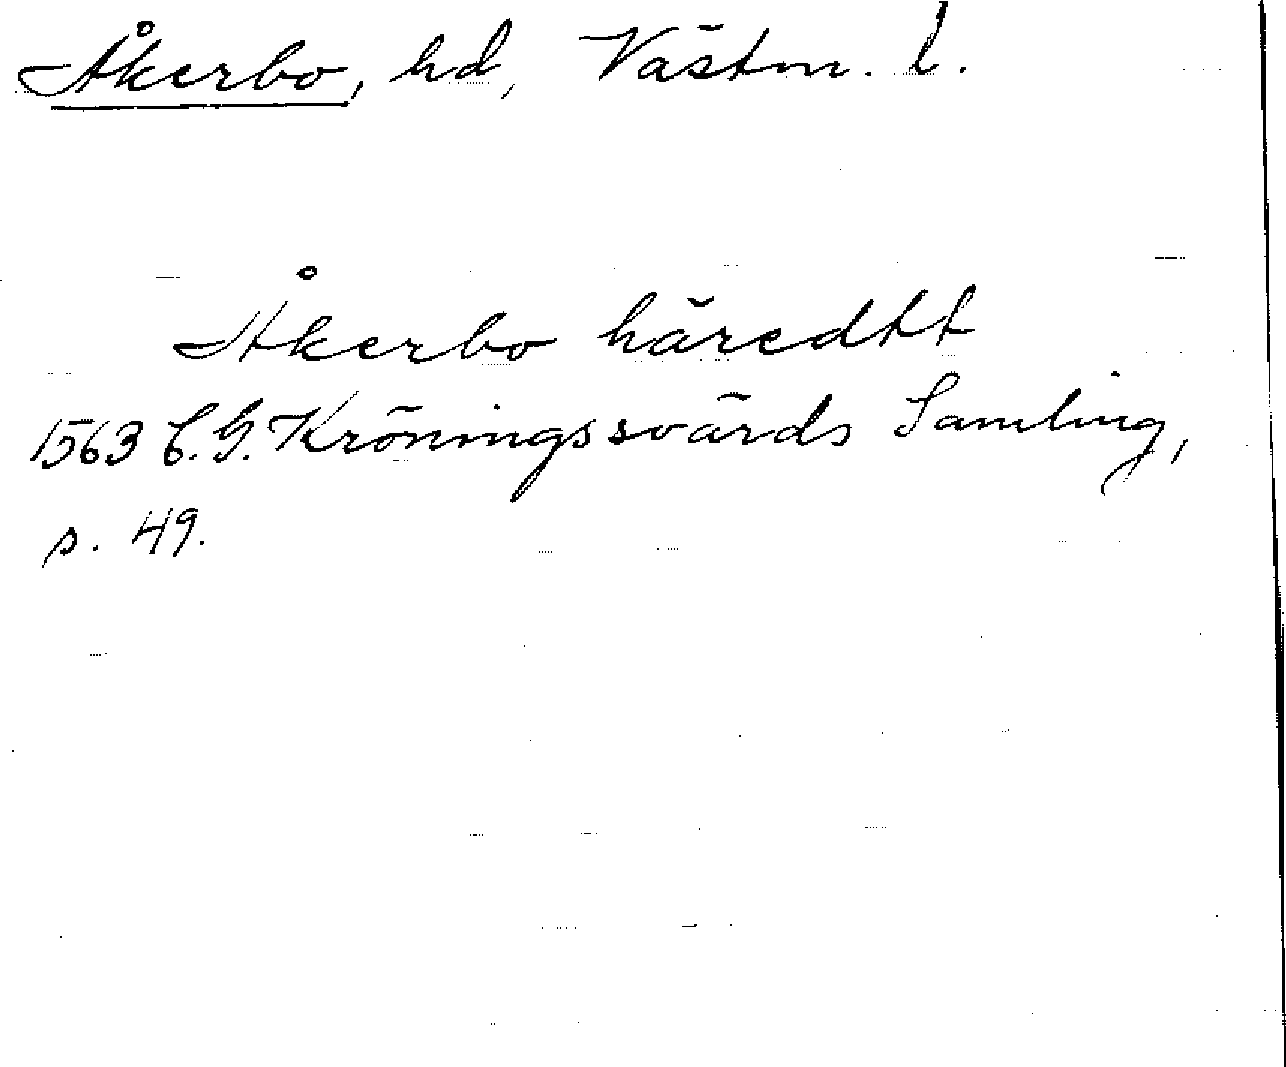 Åkerbo, hd, Västm. l.
Åkerbo häredtt
1563 C. G. Kröningssvärds Samling,
s. 49.